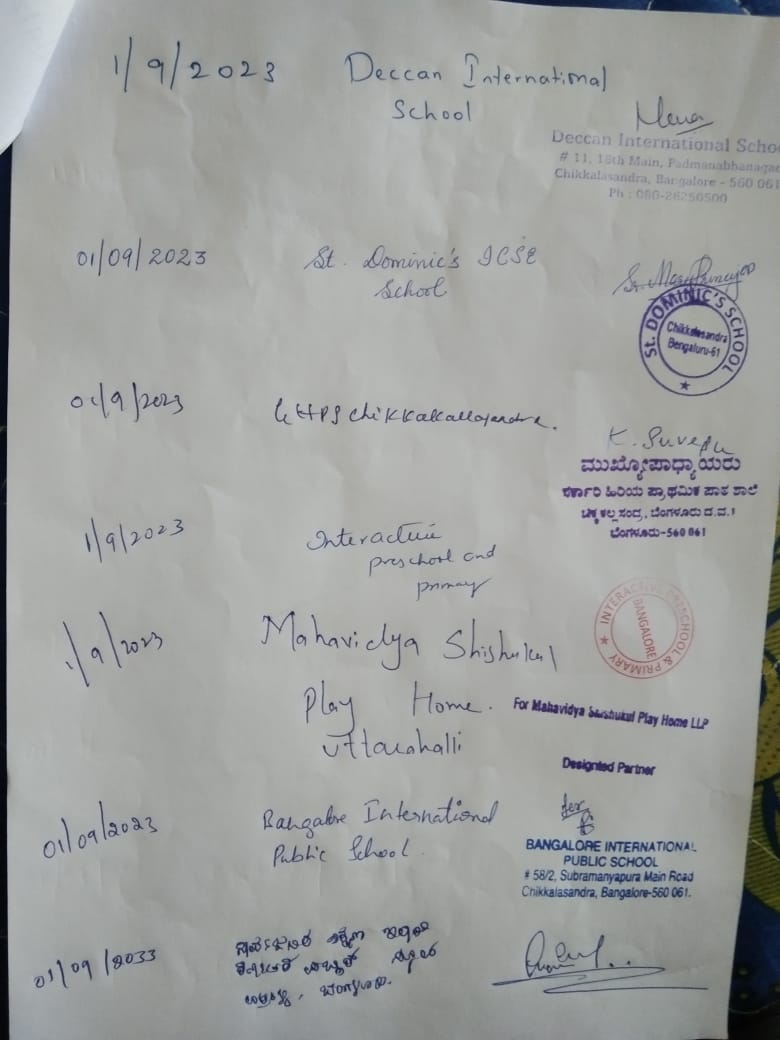 1/9/2023 Deccan International
School
Deccan International Schoo
# 11, 18th Main, Padmanabhanagar
Chikkalasandra, Bangalore - 560 061
Ph : 080-26250500
01/09/2023 St. Dominic's ICSE
School
St. DOMINIC'S SCHOOL
Chikkalasandra
Bengaluru-61
01/9/2023 GHPS
K.
ಮುಖ್ಯೋಪಾಧ್ಯಾಯರು
ಸರ್ಕಾರಿ ಹಿರಿಯ ಪ್ರಾಥಮಿಕ ಪಾಠ ಶಾಲೆ
ಚಿಕ್ಕಕಲ್ಲಸಂದ್ರ, ಬೆಂಗಳೂರು ದ.ವ.1
ಬೆಂಗಳೂರು-560 061
1/9/2023 Interactive
preschool and
primary
INTERACTIVE PRESCHOOL & PRIMARY
BANGALORE
1/9/2023 Mahavidya Shishukul
Play Home.
Uttarahalli
For Mahavidya Shishukul Play Home LLP
Designted Partner
01/09/2023 Bangalore International
Public School
for
BANGALORE INTERNATIONAL
PUBLIC SCHOOL
# 58/2, Subramanyapura Main Road
Chikkalasandra, Bangalore-560 061.
01/09/2033